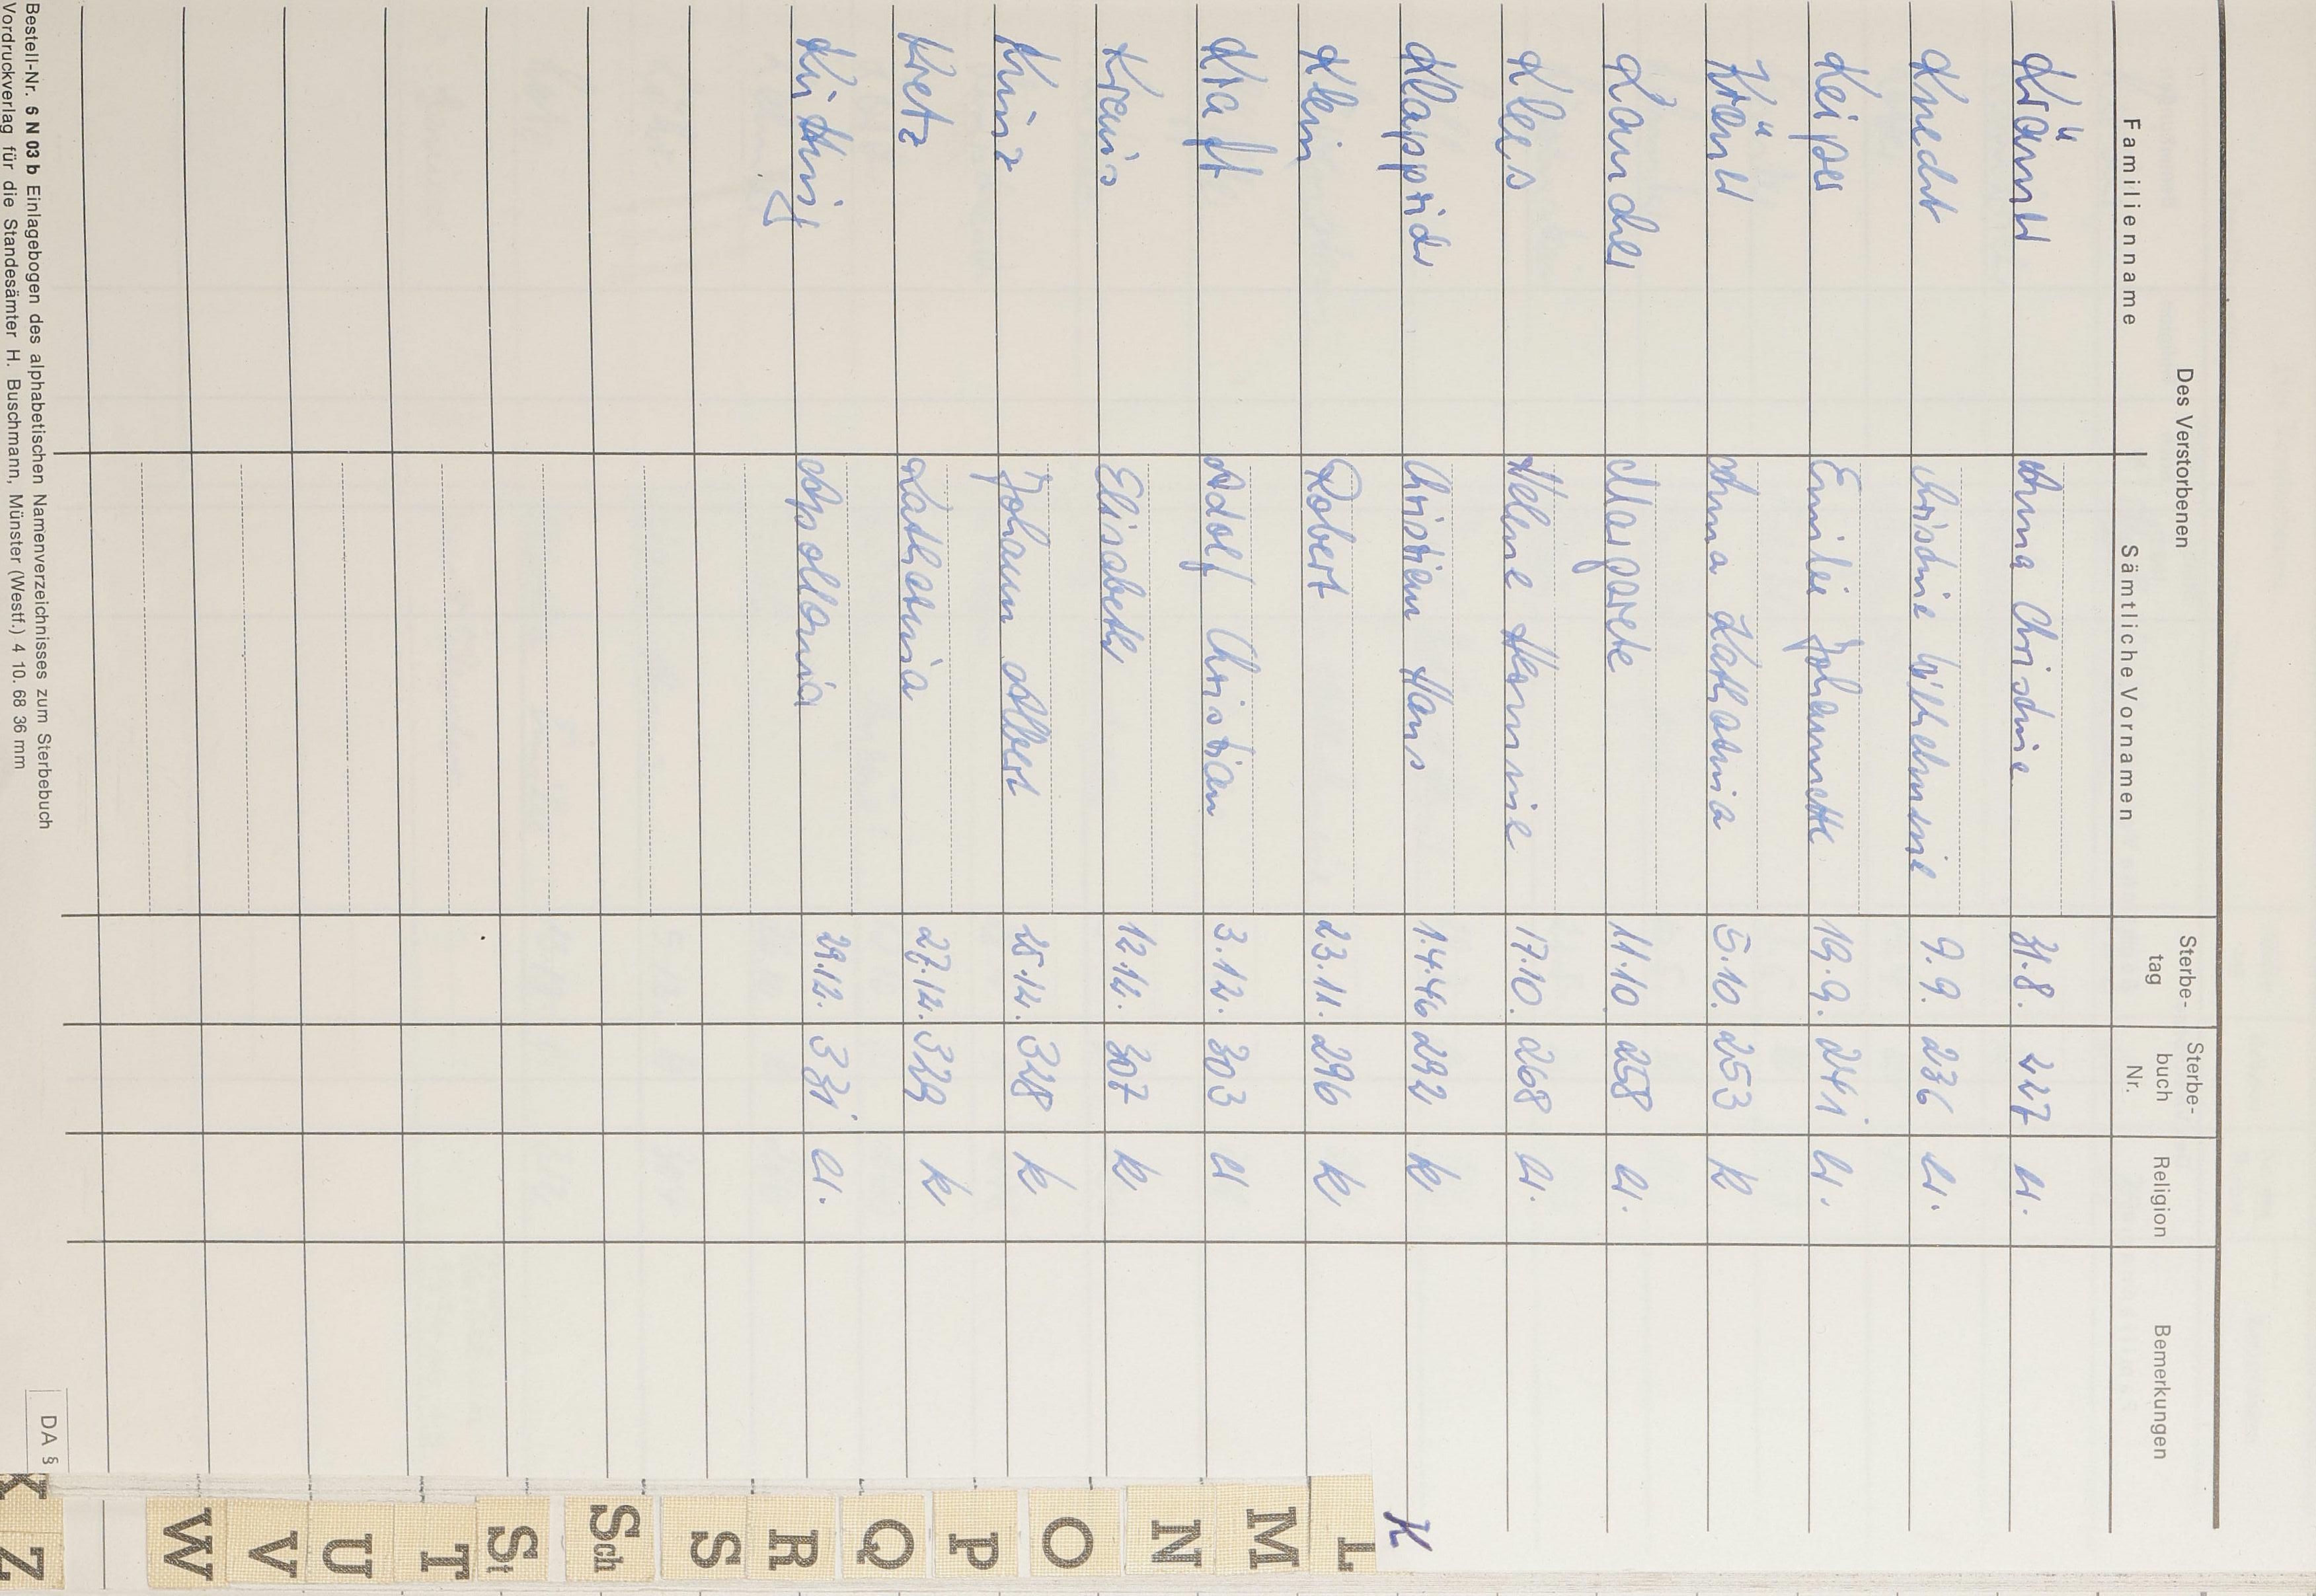 Des Verstorbenen
Familienname Sämtliche Vornamen Sterbe-tag Sterbe-buch Nr. Religion Bemerkungen
Krämer Anna Christine 31.8. 227 ev.
Knecht Christine Wilhelmine 9.9. 236 ev.
Keiper Emilie Johannette 19.9. 241 ev.
Krämer Anna Katharina 5.10. 253 k
Karcher Margarete 11.10 258 ev.
Klees Helene Hermine 17.10. 268 ev.
Klapproth Christian Hans 1.4.46 292 k
Klein Robert 23.11. 296 k
Kraft Adolf Christian 3.12. 303 ev
Kreuis Elisabeth 12.12. 307 k
Kunz Johann Albert 25.12. 328 k
Kretz Katharina 27.12. 329 k
Apollonia 29.12. 331 ev.
Bestell-Nr. 6 N 03 b Einlagebogen des alphabetischen Namenverzeichnisses zum Sterbebuch
Vordruckverlag für die Standesämter H. Buschmann, Münster (Westf.) 4 10. 68 36 mm
DA §
K
L
M
N
O
P
Q
R
S
Sch
St
T
U
V
W
Z